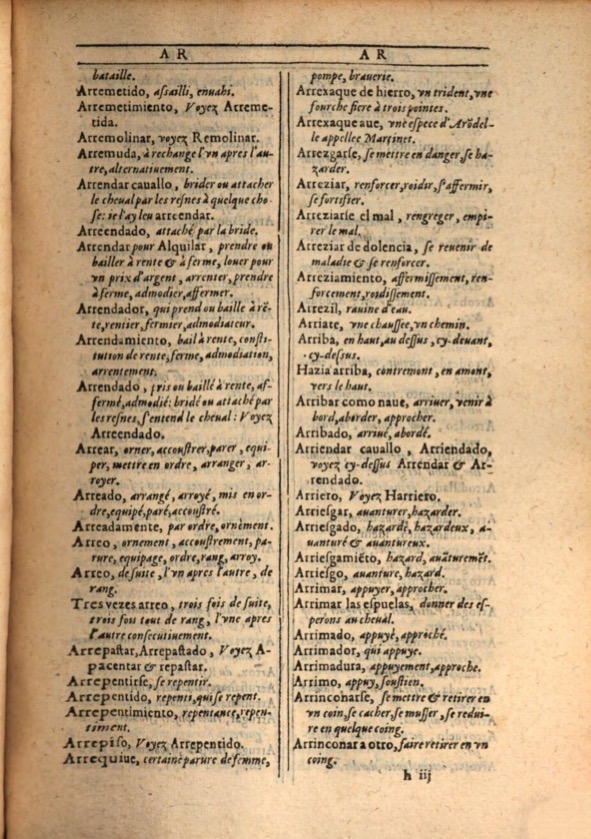 AR
bataille.
Arremetido, aſsailli, enuahi.
Arremetimiento, Voyez Arreme-
tida.
Arremolinar, voyez Remolinar.
Arremuda, à rechange l'vn apres l'au-
tre, alternatiuement.
Arrendar cauallo, brider ou attacher
le cheual par les reſnes à quelque cho-
ſe: ie l'ay leu arreendar.
Arreendado, attaché par la bride.
Arrendar pour Alquilar, prendre ou
bailler à rente & à ferme, louer pour
vn prix d'argent, arrenter, prendre
à ferme, admodier, affermer.
Arrendador, qui prend ou baille à rẽ-
te, rentier, fermier, admodiateur.
Arrendamiento, bail à rente, conſti-
tution de rente, ferme, admodiation,
arrentement.
Arrendado, pris ou baillé à rente, af-
fermé, admodié: bridé ou attaché par
les reſnes, s'entend le cheual: Voyez
Arreendado.
Arrear, orner, accouſtrer, parer, equi-
per, mettre en ordre, arranger, ar-
royer.
Arreado, arrangé, arroyé, mis en or-
dre, equipé, paré, accouſtré.
Arreadamente, par ordre, ornément.
Arreo, ornement, accouſtrement, pa-
rure, equipage, ordre, rang, arroy.
Arreo, de ſuite, l'vn apres l'autre, de
rang.
Tres vezes arreo, trois fois de ſuite,
trois fois tout de rang, l'vne apres
l'autre conſecutiuement.
Arrepaſtar, Arrepaſtado, Voyez A-
pacentar & repaſtar.
Arrepentirſe, ſe repentir.
Arrepentido, repenti, qui ſe repent.
Arrepentimiento, repentance, repen-
timent.
Arrepiſo, Voyez Arrepentido.
Arrequiue, certaine parure de femme,
AR
pompe, brauerie.
Arrexaque de hierro, vn trident, vne
fourche fiere à trois pointes.
Arrexaque aue, vne eſpece d'Arõdel-
le appellee Martinet.
Arrezgarſe, ſe mettre en danger, ſe ha-
zarder.
Arreziar, renforcer, roidir, s'affermir,
ſe fortifier.
Arreziarſe el mal, rengreger, empi-
rer le mal.
Arreziar de dolencia, ſe reuenir de
maladie & ſe renforcer.
Arreziamiento, affermiſſement, ren-
forcement, roidiſſement.
Arrezil, rauine d'eau.
Arriate, vne chauſſee, vn chemin.
Arriba, en haut, au deſſus, cy-deuant,
cy-deſsus.
Hazia arriba, contremont, en amont,
vers le haut.
Arribar como naue, arriuer, venir à
bord, aborder, approcher.
Arribado, arriué, abordé.
Arriendar cauallo, Arriendado,
voyez cy-deſſus Arrendar & Ar-
rendado.
Arriero, Voyez Harriero.
Arrieſgar, auanturer, hazarder.
Arrieſgado, hazardé, hazardeux, a-
uanturé & auantureux.
Arrieſgamiẽto, hazard, auãturemẽt.
Arrieſgo, auanture, hazard.
Arrimar, appuyer, approcher.
Arrimar las eſpuelas, donner des eſ-
perons au cheual.
Arrimado, appuyé, approché.
Arrimador, qui appuye.
Arrimadura, appuyement, approche.
Arrimo, appuy, ſouſtien.
Arrinconarſe, ſe mettre & retirer en
vn coin, ſe cacher, ſe muſſer, ſe redui-
re en quelque coing.
Arrinconar a otro, faire retirer en vn
coing.
h iij